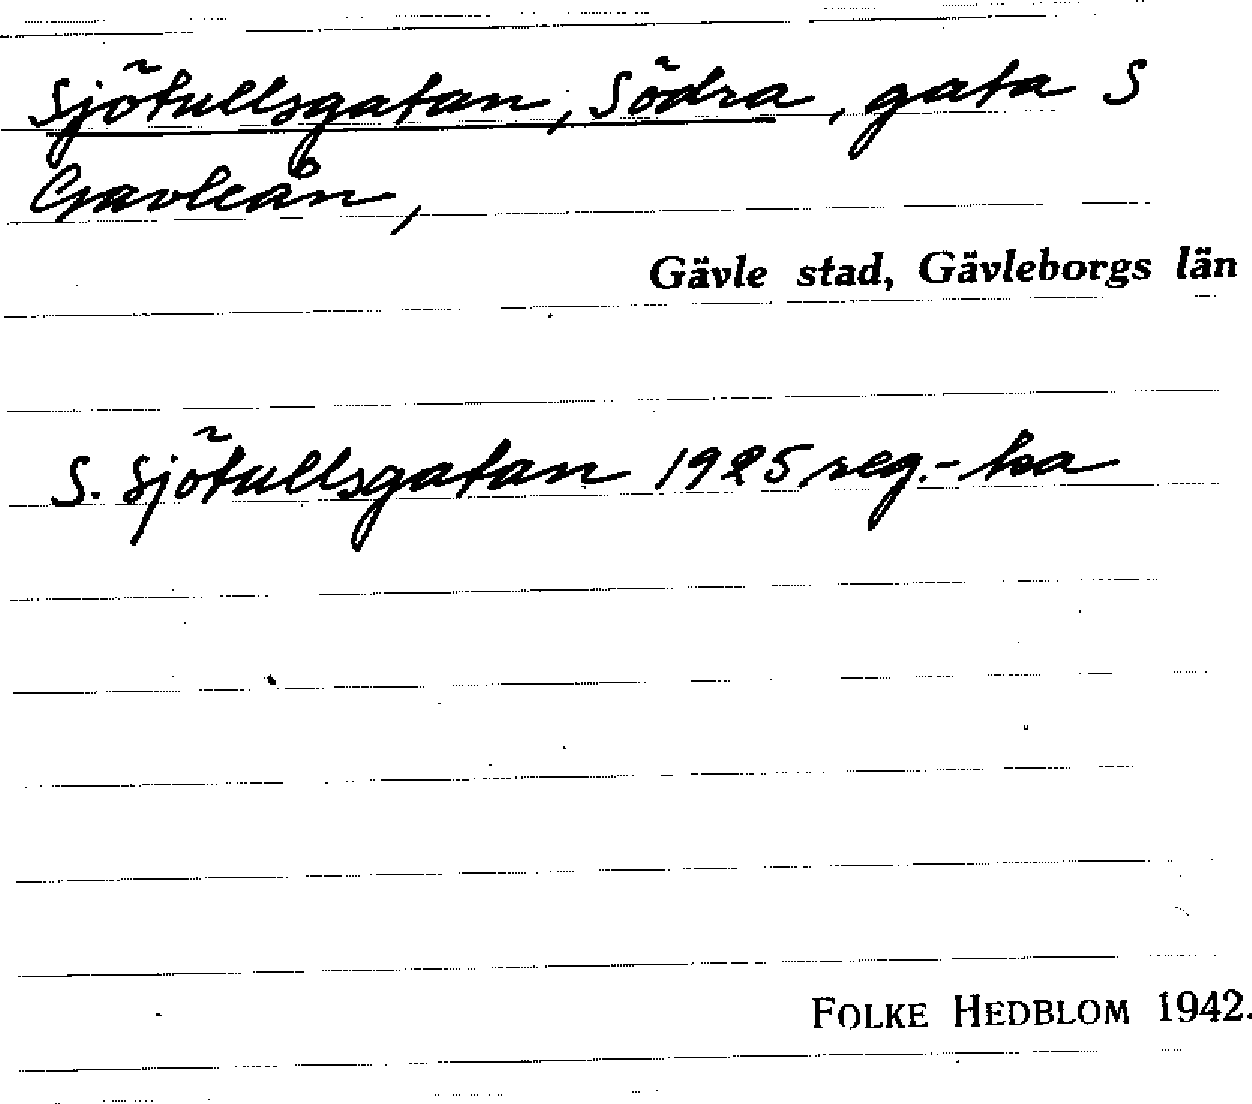 Sjötullsgatan, Södra, gata S
Gavleån,
Gävle stad, Gävleborgs län
S. Sjötullsgatan 1925 reg.-ka
FOLKE HEDBLOM 1942.